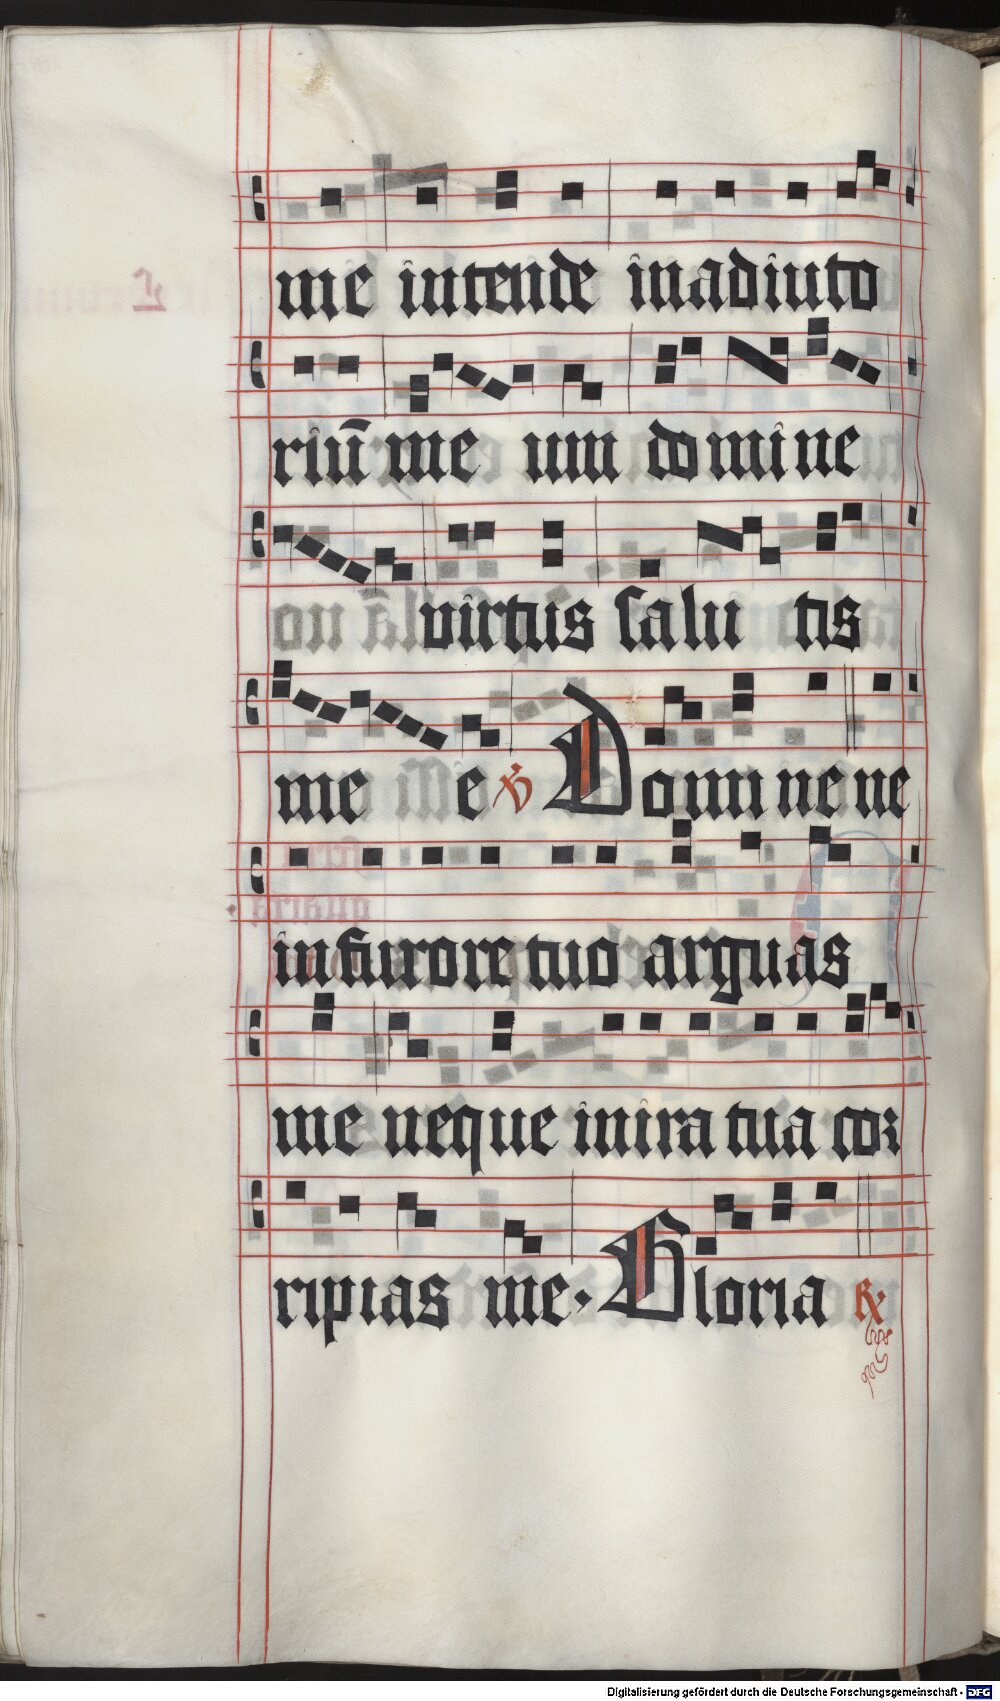 me intende inadiuto
riū me um domine
virtus salu tis
me e ℣ Domine ne
in furore tuo arguas
me neque in ira tua cor
ripias me. Gloria ℟
Digitalisierung gefördert durch die Deutsche Forschungsgemeinschaft - DFG